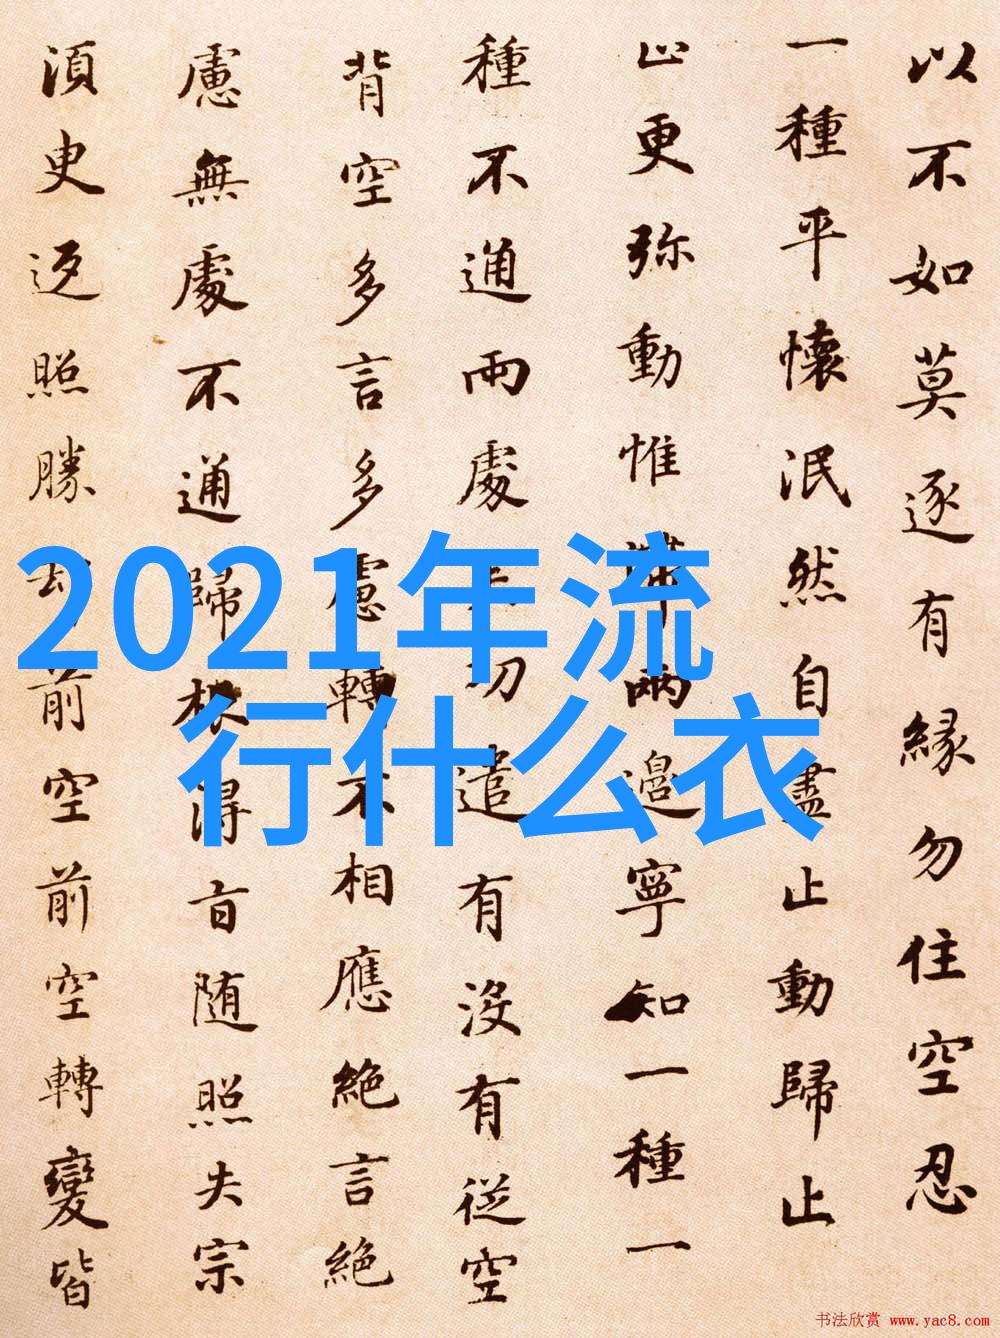 以不如莫逐有緣勿住空忍
一種平懷泯然自盡止動歸止
止更弥動惟滯兩邊寧知一種一
種不通兩處失功遣有沒有従空
背空多言多慮轉不相應絶言絶
慮無處不通歸根得旨随照失宗
湏臾返照勝却前空前空轉變皆
2021年流
行什么衣
书法欣赏 www.yac8.com